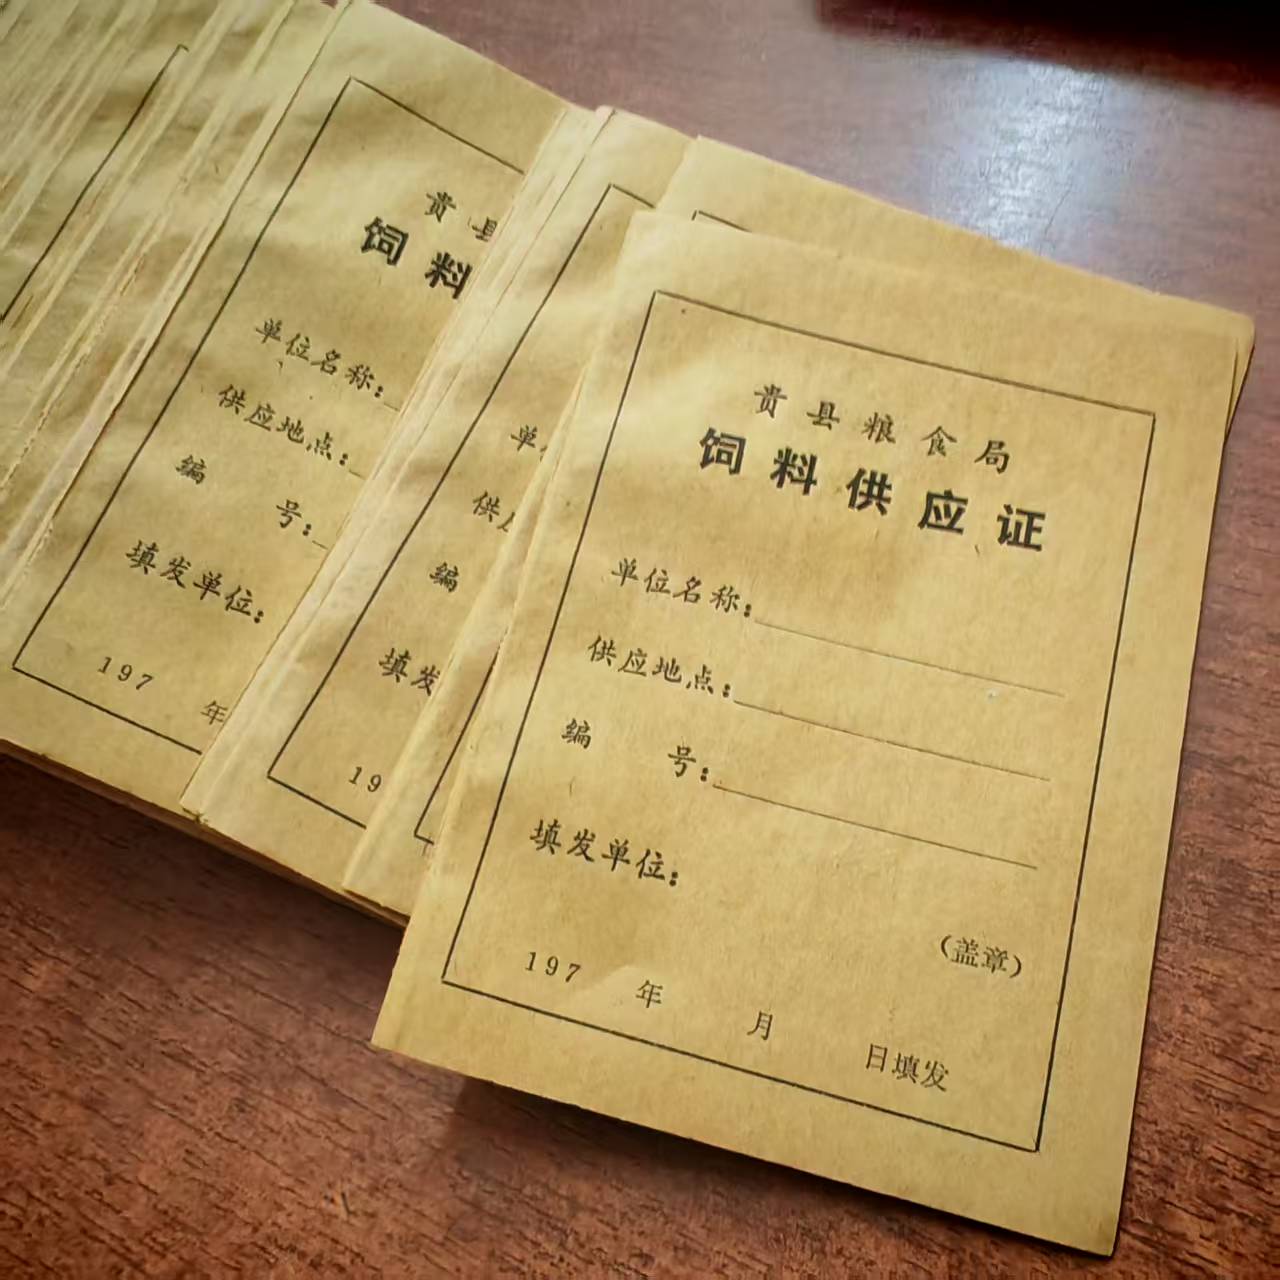 贵县粮食局
饲料供应证
单位名称:
供应地点:
编 号:
填发单位:
(盖章)
197 年 月 日填发
贵县
饲料
单位名称:
供应地点:
编 号:
填发单位:
197 年
单
供
编
填发
19